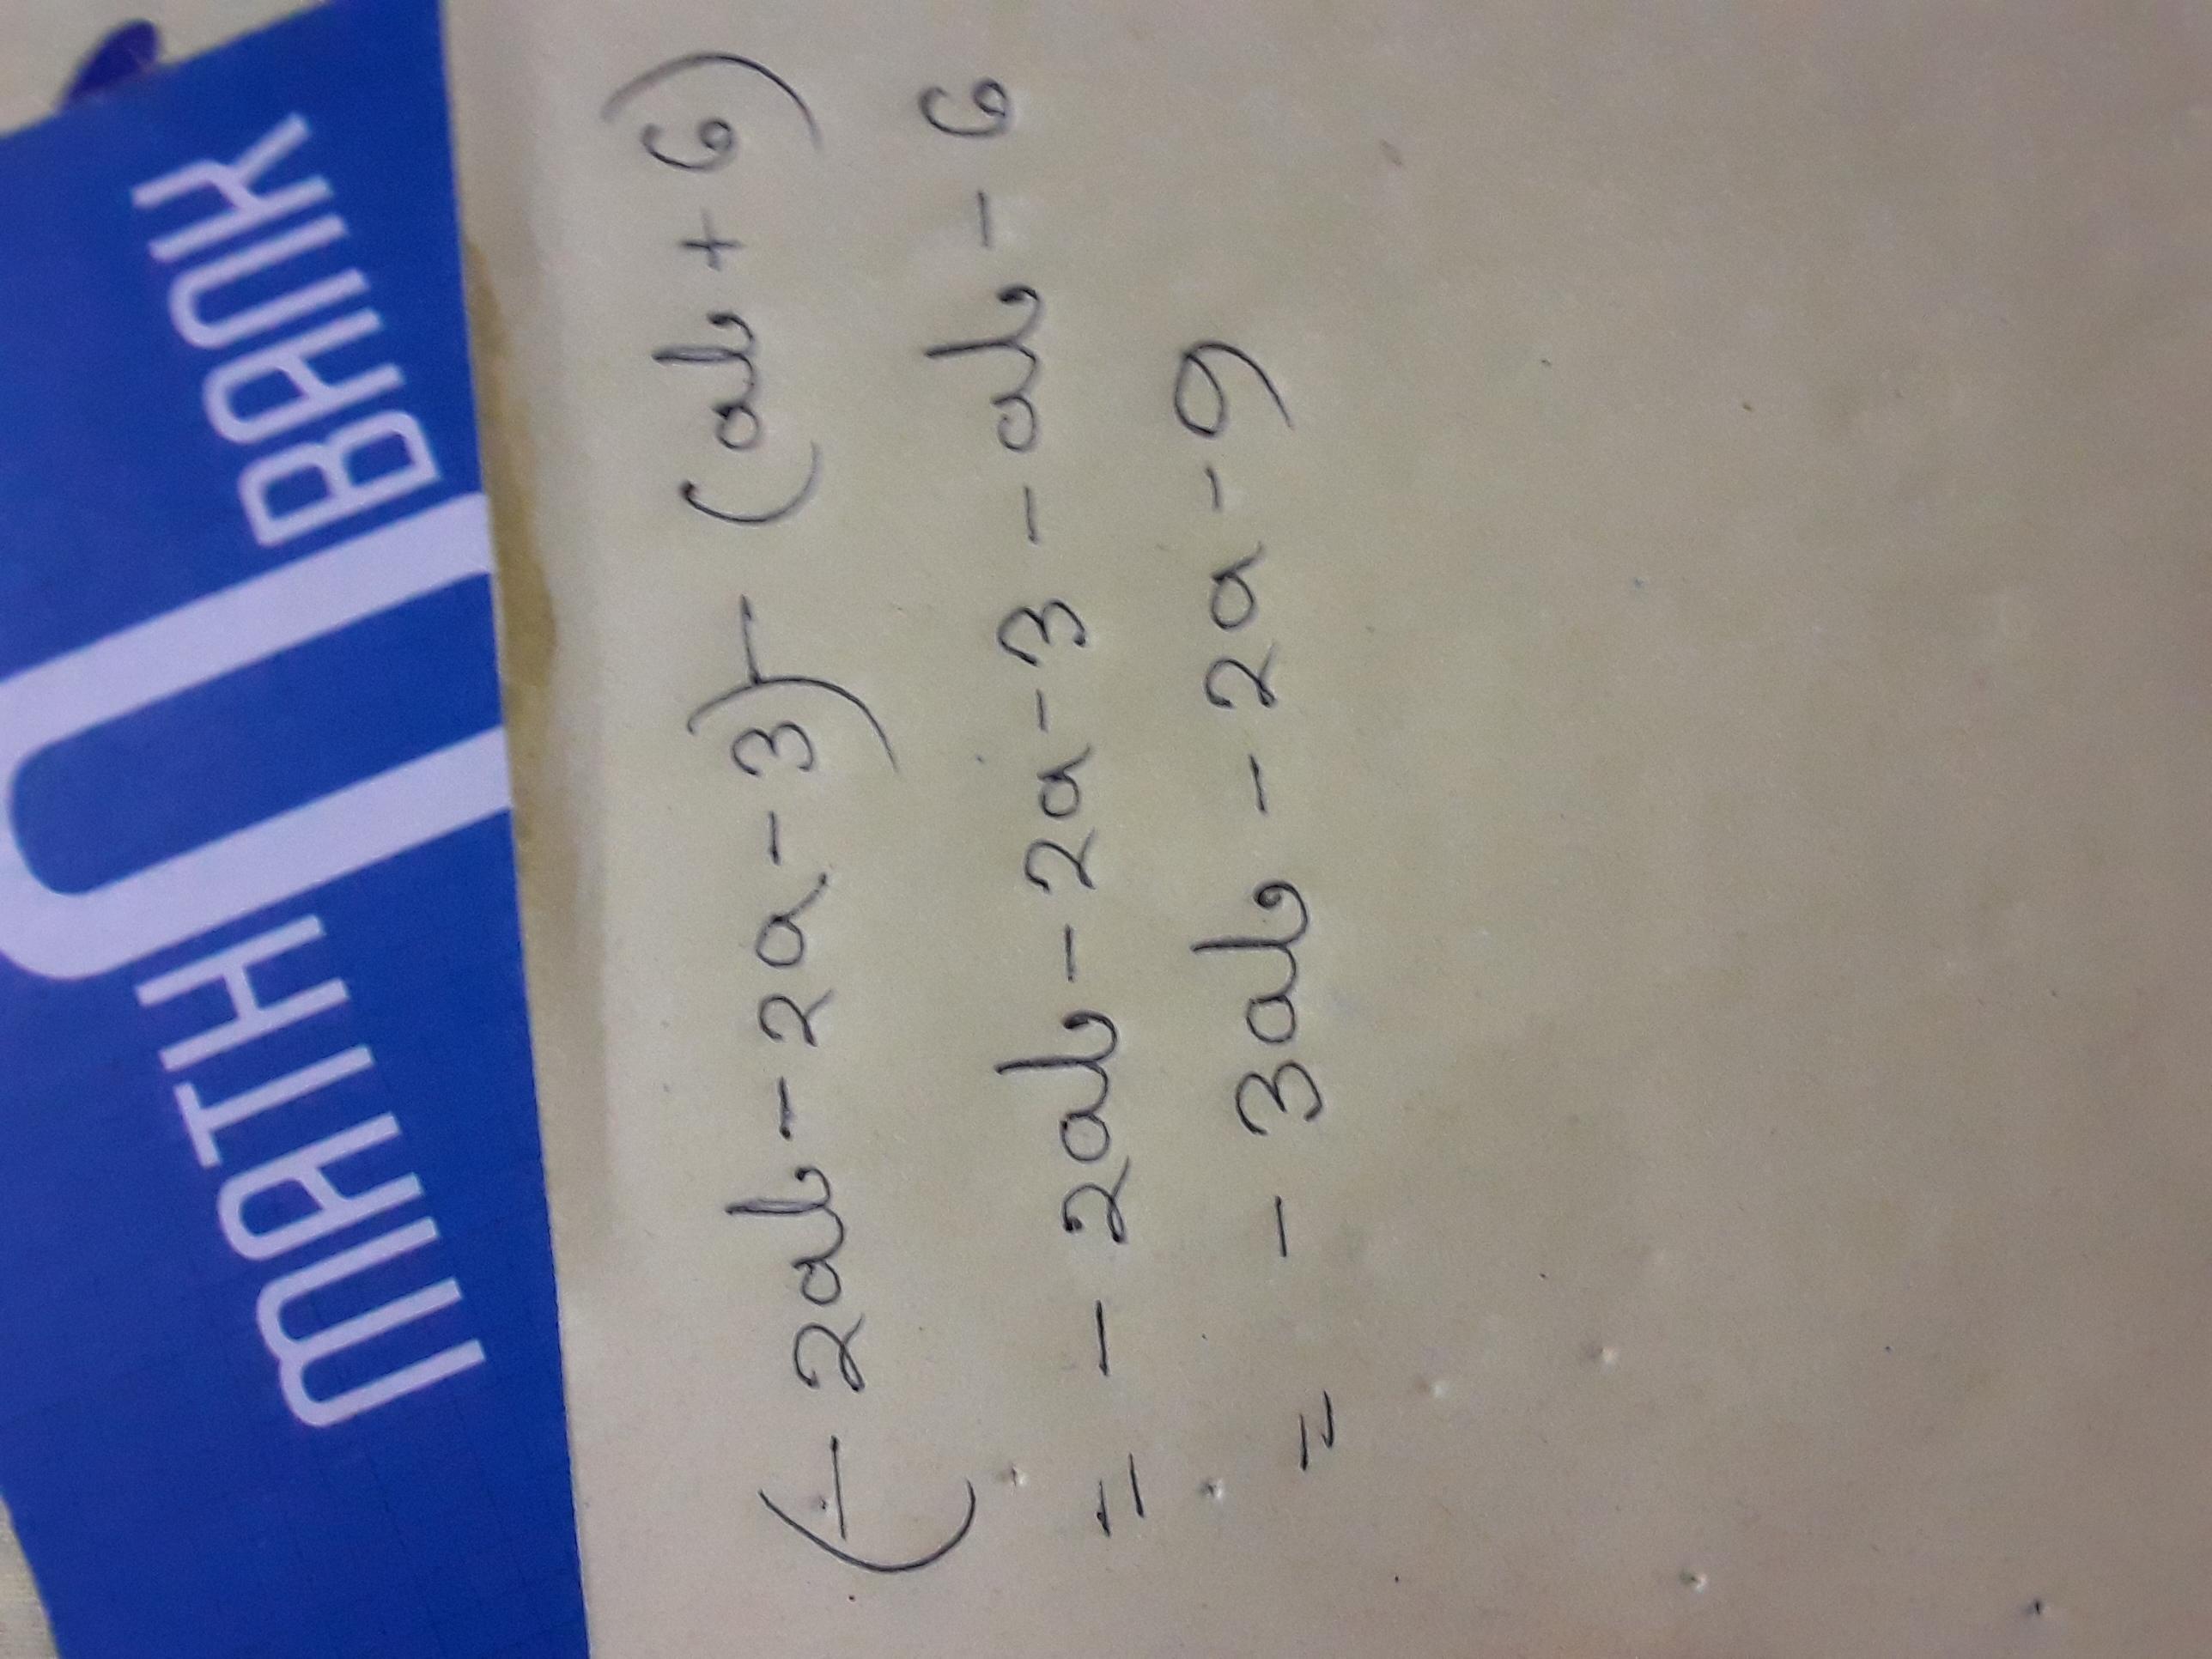 MATH U BANK
(- 2ab - 2a - 3) - (ab + 6)
= - 2ab - 2a - 3 - ab - 6
= - 3ab - 2a - 9